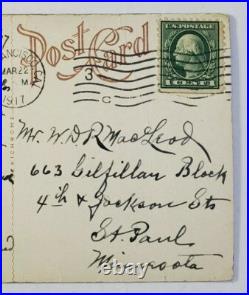 Post Card
U.S. POSTAGE
1 CENT 1
MAR 22
M
1917
3
C
Mr. W. D. R. MacLeod
663 Gilfillan Block
4th & Jackson Sts
St. Paul
Minnesota